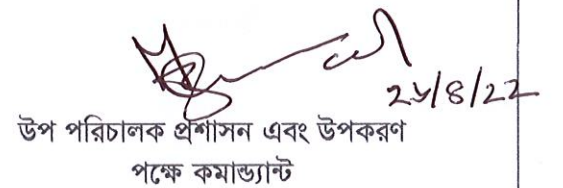 উপ পরিচালক প্রশাসন এবং উপকরণ
পক্ষে কমান্ড্যান্ট